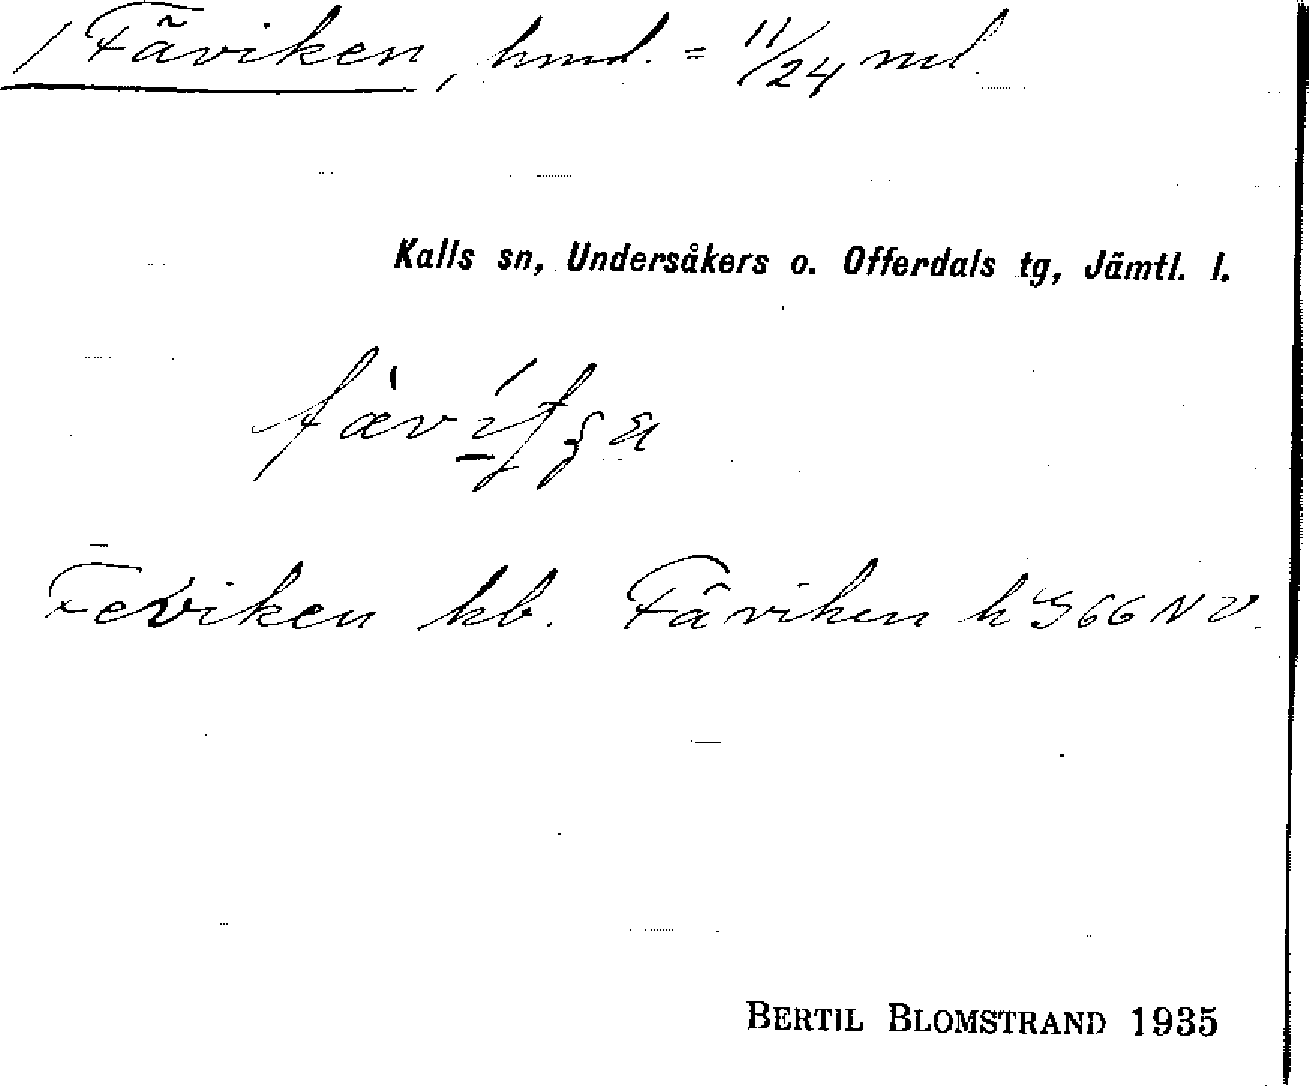 / Fäviken, hmd. = 11/24 ml
Kalls sn, Undersåkers o. Offerdals tg, Jämtl. l.
Feviken kb. Fäviken h S 66 NV.
BERTIL BLOMSTRAND 1935